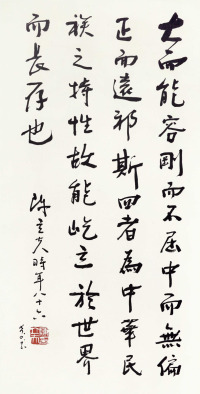 大而能容剛而不屈中而無偏
正而遠邪斯四者為中華民
族之特性故能屹立於世界
而長存也
陳立夫時年八十六